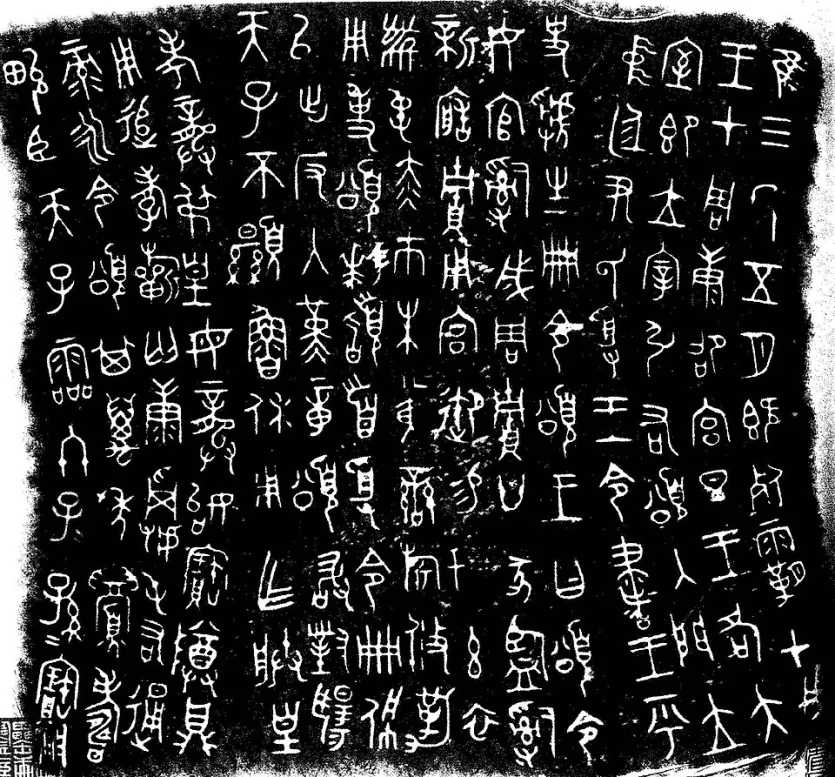 隹三年五月既死霸甲戌
王才周康卲宮旦王各大
室即立宰引右頌入門立
中廷尹氏受王令書王乎
史虢生冊令頌王曰頌令
女官𤔲成周貯廿家監𤔲
新造貯用宮御易女玄衣
黹屯赤市朱黃䜌旂攸勒
用事頌拜稽首受令冊佩
以出反入堇章頌敢對揚
天子不顯魯休用乍朕皇
考龏叔皇母龏始寶尊鼎
用追孝祈匄康𩛥屯右通
彔永令頌其萬年眉壽
畯臣天子霝冬子孫寶用